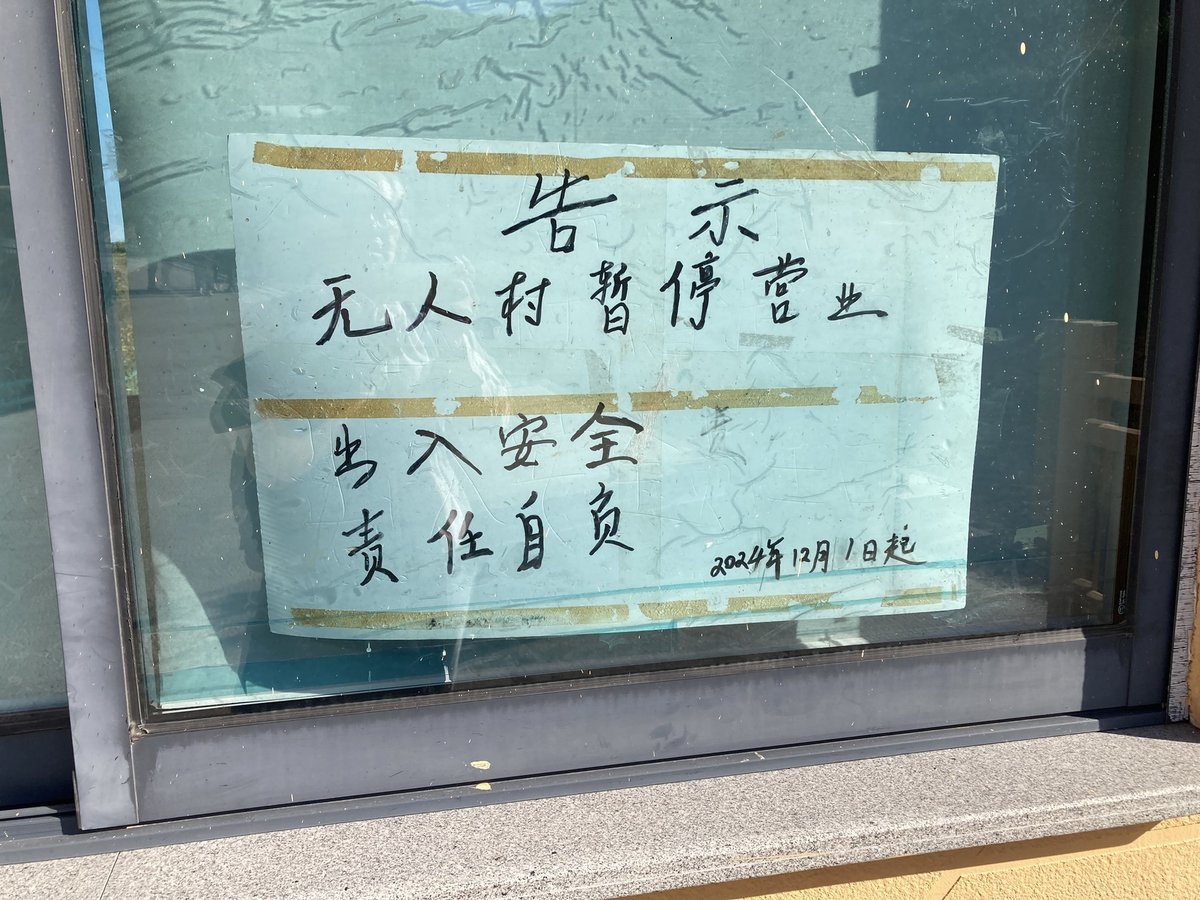 告示
无人村暂停营业
出入安全
责任自负
2024年12月1日起